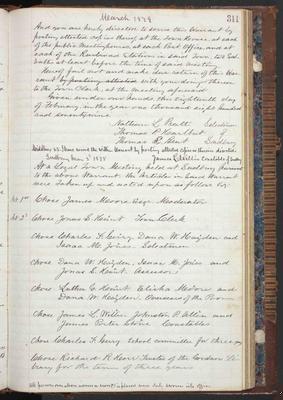 March 1879
311
And you are hereby directed to serve this Warrant by
posting attested copies thereof at the Town House, at each
of the public Meetinghouses, at each Post Office, and at
each of the Railroad Stations in said Town,
at least before the time of said meeting
Hereof fail not and make due return of this War-
rant by posting attested with your doings thereon
to the Town Clerk, at the meeting aforesaid
Given under our hands this eighteenth day
of February in the year one thousand eight hundred
and seventynine
Selectmen
Thomas P. Hurlbut of
Thomas Sudbury
Middlesex ss. I have served the within Warrant by posting attested copies as therein directed
Sudbury Mar 3 1879
Constable of Sudbury
At a Legal Town Meeting held at Sudbury pursuant
to the above Warrant the Articles in said Warrant
were taken up and acted upon as follows viz:
Art 1st Chose James Moore Esqr Moderator
Art 2d Chose Jonas S. Hunt Town Clerk
Chose Charles F. Gerry Dana W. Hayden and
Isaac M. Jones Selectmen
Chose Dana W. Hayden, Isaac M. Jones and
Jonas S. Hunt Assessors
Chose Luther C. Hunt and
Dana W. Hayden Overseers of the Poor
Chose James L. Willis Johnston P. Allin and
James Porter Stone Constables
Chose Charles F. Gerry School committee for three yrs
Chose Richard R. Kerr Trustee of the Goodnow Li-
brary for the term of three years